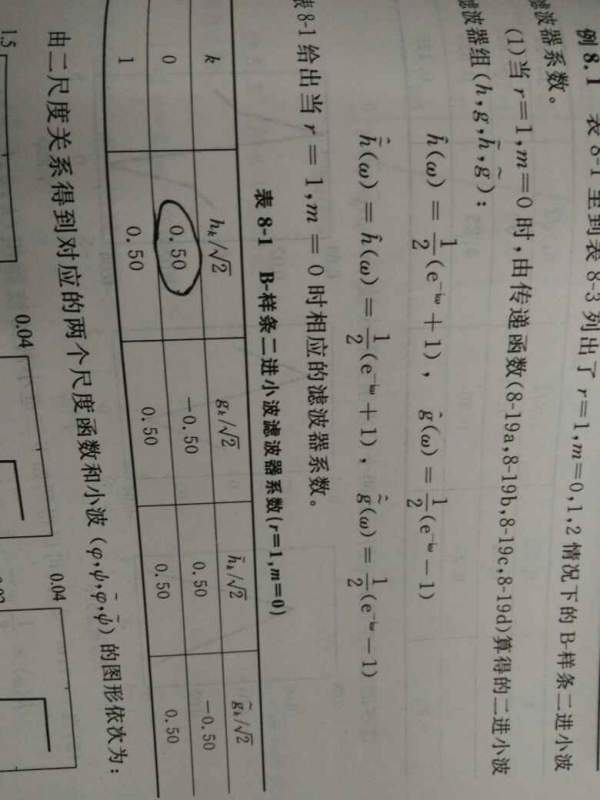 例 8.1 表 8-1 至到表 8-3 列出了 r=1,m=0,1,2 情况下的 B-样条二进小波
滤波器系数。
(1)当 r=1,m=0 时,由传递函数(8-19a,8-19b,8-19c,8-19d)算得的二进小波
滤波器组(h,g,h̃,g̃):
ĥ(ω)=1/2(e^{-iω}+1), ĝ(ω)=1/2(e^{-iω}-1)
h̃̂(ω)=ĥ(ω)=1/2(e^{-iω}+1), g̃̂(ω)=1/2(e^{-iω}-1)
表 8-1 给出当 r=1,m=0 时相应的滤波器系数。
表 8-1 B-样条二进小波滤波器系数(r=1,m=0)
k h_k/√2 g_k/√2 h̃_k/√2 g̃_k/√2
0 0.50 -0.50 0.50 -0.50
1 0.50 0.50 0.50 0.50
由二尺度关系得到对应的两个尺度函数和小波(φ,ψ,φ̃,ψ̃)的图形依次为:
1.5 0.04 0.04